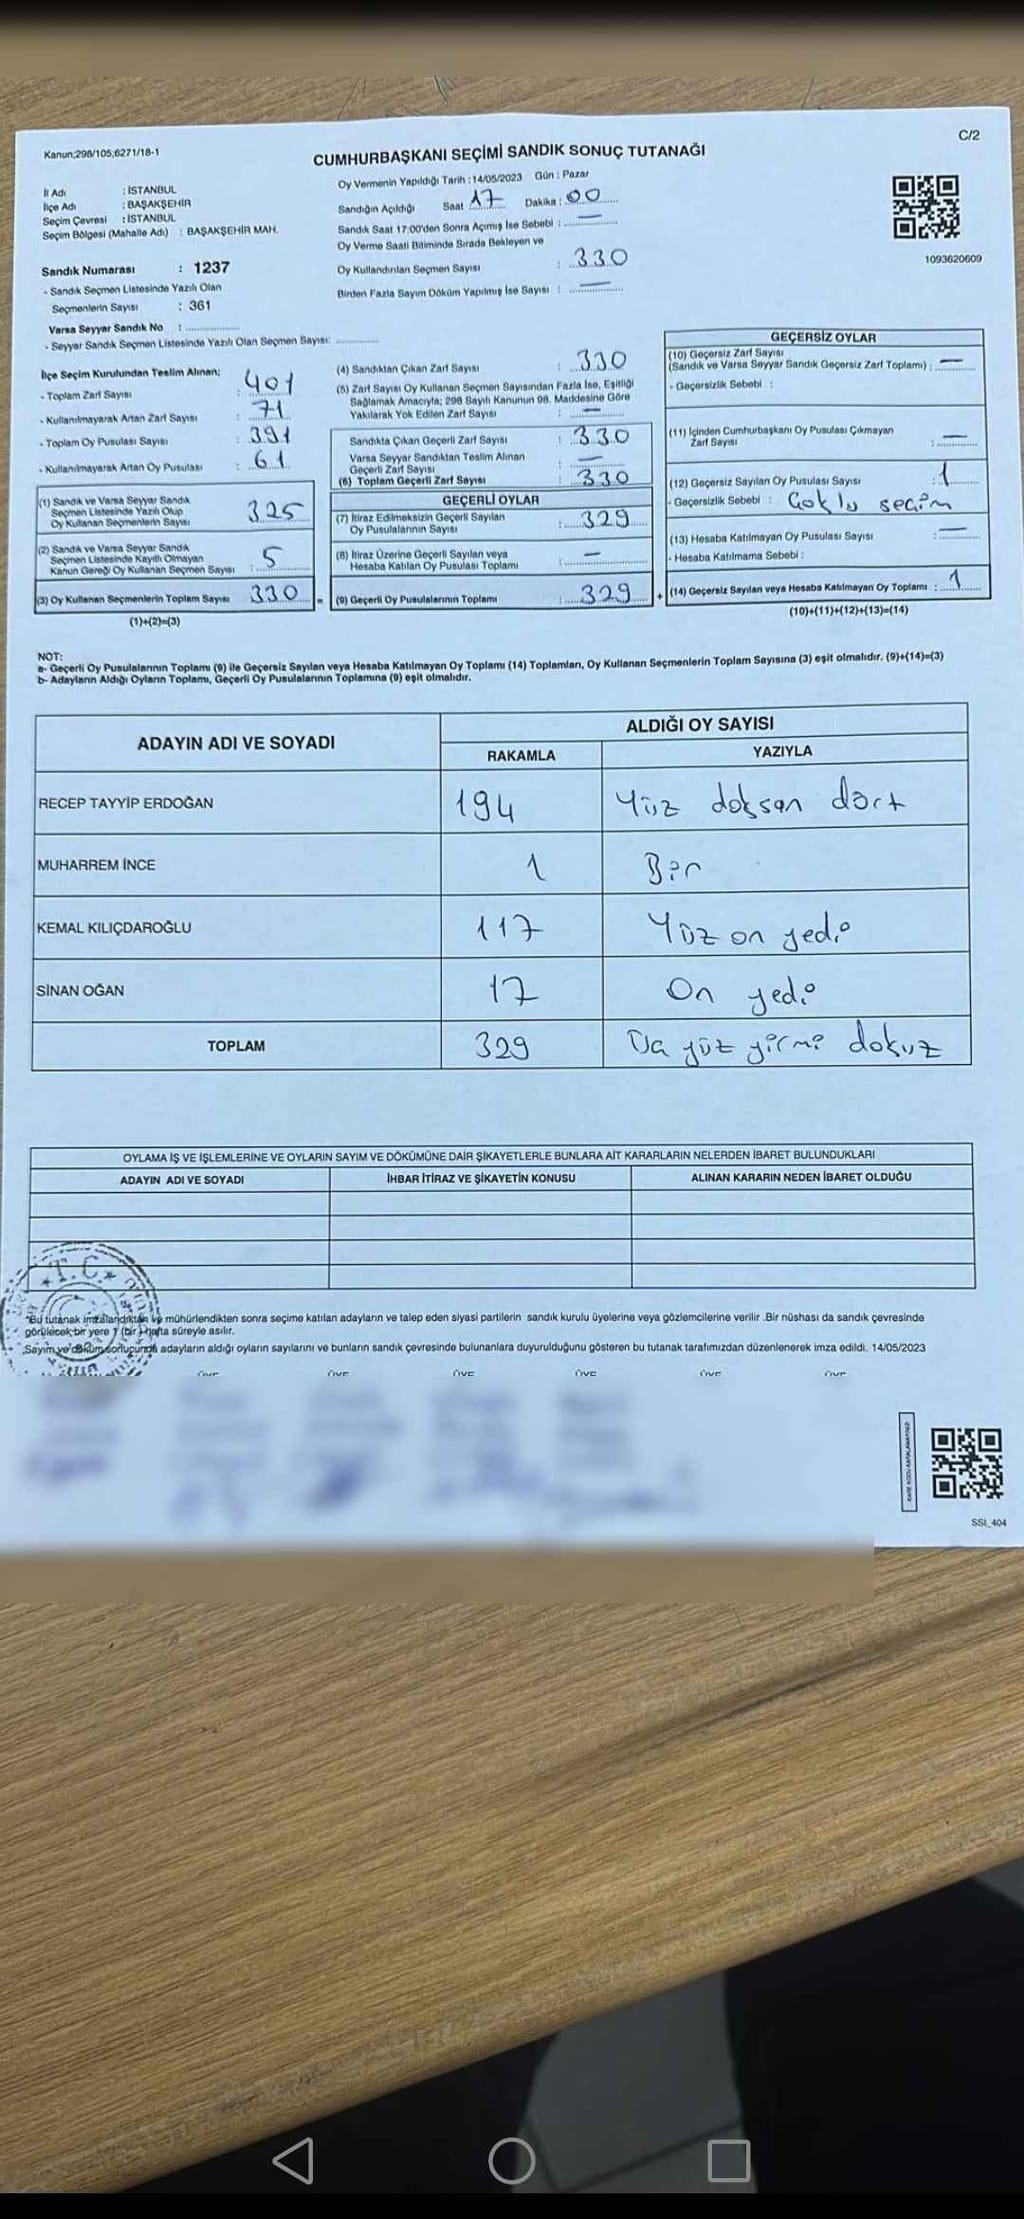 Kanun;298/105,6271/18-1
C/2
CUMHURBAŞKANI SEÇİMİ SANDIK SONUÇ TUTANAĞI
İl Adı : İSTANBUL
İlçe Adı : BAŞAKŞEHİR
Seçim Çevresi : İSTANBUL
Seçim Bölgesi (Mahalle Adı) : BAŞAKŞEHİR MAH.
Sandık Numarası : 1237
- Sandık Seçmen Listesinde Yazılı Olan
Seçmenlerin Sayısı : 361
Varsa Seyyar Sandık No :
- Seyyar Sandık Seçmen Listesinde Yazılı Olan Seçmen Sayısı:
Oy Vermenin Yapıldığı Tarih : 14/05/2023 Gün : Pazar
Sandığın Açıldığı Saat 17 Dakika : 00
Sandık Saat 17:00'den Sonra Açımış İse Sebebi : —
Oy Verme Saati Bitiminde Sırada Bekleyen ve
Oy Kullandırılan Seçmen Sayısı : 330
Birden Fazla Sayım Döküm Yapılmış İse Sayısı : —
1093620609
İlçe Seçim Kurulundan Teslim Alınan;
- Toplam Zarf Sayısı : 401
- Kullanılmayarak Artan Zarf Sayısı : 71
- Toplam Oy Pusulası Sayısı : 391
- Kullanılmayarak Artan Oy Pusulası : 61
(1) Sandık ve Varsa Seyyar Sandık
Seçmen Listesinde Yazılı Olup
Oy Kullanan Seçmenlerin Sayısı 325
(2) Sandık ve Varsa Seyyar Sandık
Seçmen Listesinde Kayıtlı Olmayan
Kanun Gereği Oy Kullanan Seçmen Sayısı : 5
(3) Oy Kullanan Seçmenlerin Toplam Sayısı 330 =
(1)+(2)=(3)
(4) Sandıktan Çıkan Zarf Sayısı : 330
(5) Zarf Sayısı Oy Kullanan Seçmen Sayısından Fazla İse, Eşitliği
Sağlamak Amacıyla; 298 Sayılı Kanunun 98. Maddesine Göre
Yakılarak Yok Edilen Zarf Sayısı : —
Sandıkta Çıkan Geçerli Zarf Sayısı : 330
Varsa Seyyar Sandıktan Teslim Alınan
Geçerli Zarf Sayısı : —
(6) Toplam Geçerli Zarf Sayısı : 330
GEÇERLİ OYLAR
(7) İtiraz Edilmeksizin Geçerli Sayılan
Oy Pusulalarının Sayısı : 329
(8) İtiraz Üzerine Geçerli Sayılan veya
Hesaba Katılan Oy Pusulası Toplamı : —
(9) Geçerli Oy Pusulalarının Toplamı : 329 +
GEÇERSİZ OYLAR
(10) Geçersiz Zarf Sayısı
(Sandık ve Varsa Seyyar Sandık Geçersiz Zarf Toplamı) : —
- Geçersizlik Sebebi :
(11) İçinden Cumhurbaşkanı Oy Pusulası Çıkmayan
Zarf Sayısı : —
(12) Geçersiz Sayılan Oy Pusulası Sayısı : 1
- Geçersizlik Sebebi : Çoklu seçim
(13) Hesaba Katılmayan Oy Pusulası Sayısı : —
- Hesaba Katılmama Sebebi :
(14) Geçersiz Sayılan veya Hesaba Katılmayan Oy Toplamı : 1
(10)+(11)+(12)+(13)=(14)
NOT:
a- Geçerli Oy Pusulalarının Toplamı (9) ile Geçersiz Sayılan veya Hesaba Katılmayan Oy Toplamı (14) Toplamları, Oy Kullanan Seçmenlerin Toplam Sayısına (3) eşit olmalıdır. (9)+(14)=(3)
b- Adayların Aldığı Oyların Toplamı, Geçerli Oy Pusulalarının Toplamına (9) eşit olmalıdır.
ADAYIN ADI VE SOYADI
ALDIĞI OY SAYISI
RAKAMLA YAZIYLA
RECEP TAYYİP ERDOĞAN 194 Yüz doksan dört
MUHARREM İNCE 1 Bir
KEMAL KILIÇDAROĞLU 117 Yüz on yedi
SİNAN OĞAN 17 On yedi
TOPLAM 329 Üç yüz yirmi dokuz
OYLAMA İŞ VE İŞLEMLERİNE VE OYLARIN SAYIM VE DÖKÜMÜNE DAİR ŞİKAYETLERLE BUNLARA AİT KARARLARIN NELERDEN İBARET BULUNDUKLARI
ADAYIN ADI VE SOYADI İHBAR İTİRAZ VE ŞİKAYETİN KONUSU ALINAN KARARIN NEDEN İBARET OLDUĞU
T.C.
*Bu tutanak imzalandıktan ve mühürlendikten sonra seçime katılan adayların ve talep eden siyasi partilerin sandık kurulu üyelerine veya gözlemcilerine verilir .Bir nüshası da sandık çevresinde
görülecek bir yere 1 (bir) hafta süreyle asılır.
Sayım ve döküm sonucunda adayların aldığı oyların sayılarını ve bunların sandık çevresinde bulunanlara duyurulduğunu gösteren bu tutanak tarafımızdan düzenlenerek imza edildi. 14/05/2023
ÜYE ÜYE ÜYE ÜYE ÜYE ÜYE
SSI_404